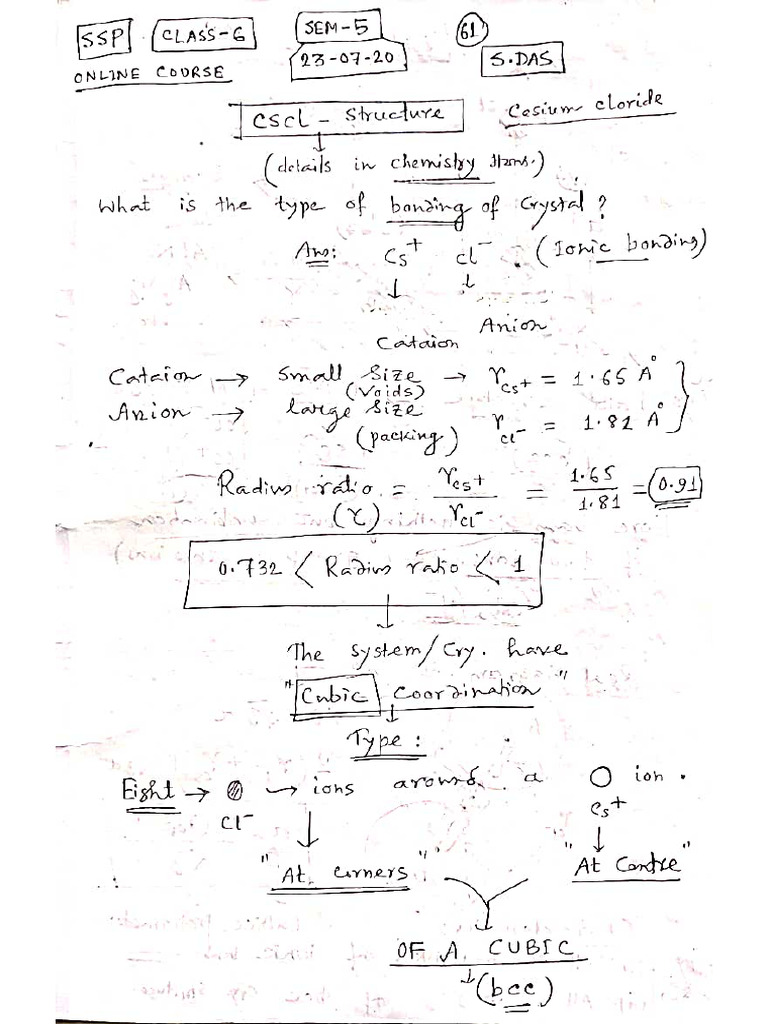 SSP CLASS-6 SEM-5 61
ONLINE COURSE 23-07-20 S.DAS
CSCl - Structure Cesium cloride
(details in chemistry)
What is the type of bonding of Crystal?
Ans: Cs+ Cl- (Ionic bonding)
↓ ↓
Cataion Anion
Cataion → Small Size (Voids) → r_Cs+ = 1.65 A°
Anion → large Size (packing) r_Cl- = 1.81 A°
Radius ratio (r) = r_Cs+ / r_Cl- = 1.65 / 1.81 = 0.91
0.732 < Radius ratio < 1
↓
The System/Cry. have
"Cubic Coordination"
↓
Type:
Eight → ions around a ion.
Cl- Cs+
↓ ↓
"At corners" "At Centre"
OF A CUBIC
↓ (bcc)